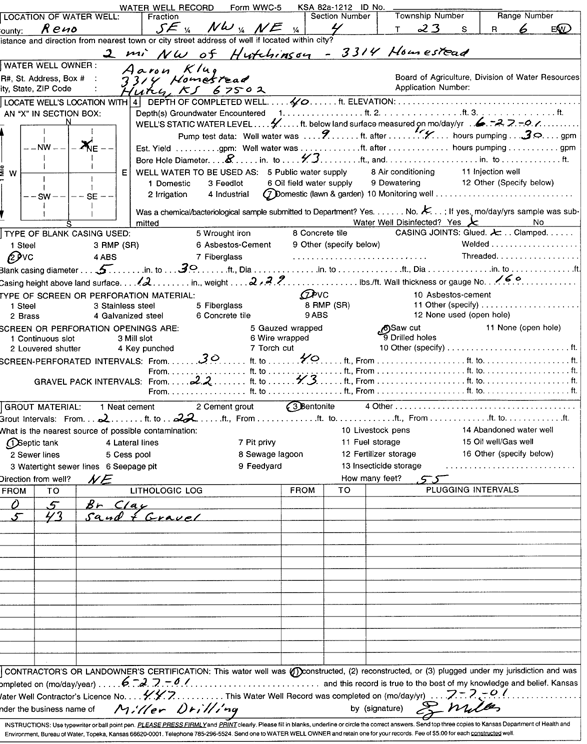 WATER WELL RECORD Form WWC-5 KSA 82a-1212 ID No.
LOCATION OF WATER WELL: Fraction Section Number Township Number Range Number
ounty: Reno SE ¼ NW ¼ NE ¼ 4 T 23 S R 6 E/W
istance and direction from nearest town or city street address of well if located within city?
2 mi NW of Hutchinson - 3314 Homestead
WATER WELL OWNER: Aaron Klug
R#, St. Address, Box # : 3314 Homestead Board of Agriculture, Division of Water Resources
ity, State, ZIP Code : Hutch, KS 67502 Application Number:
LOCATE WELL'S LOCATION WITH 4 DEPTH OF COMPLETED WELL 40 ft. ELEVATION:
AN "X" IN SECTION BOX: Depth(s) Groundwater Encountered 1 ft. 2 ft. 3 ft.
N
WELL'S STATIC WATER LEVEL 4 ft. below land surface measured on mo/day/yr 6-27-01
Pump test data: Well water was 9 ft. after 1/4 hours pumping 30 gpm
NW X NE Est. Yield gpm: Well water was ft. after hours pumping gpm
Bore Hole Diameter 8 in. to 43 ft., and in. to ft.
1 Mile W E WELL WATER TO BE USED AS: 5 Public water supply 8 Air conditioning 11 Injection well
1 Domestic 3 Feedlot 6 Oil field water supply 9 Dewatering 12 Other (Specify below)
SW SE 2 Irrigation 4 Industrial 7 Domestic (lawn & garden) 10 Monitoring well
S
Was a chemical/bacteriological sample submitted to Department? Yes No X ; If yes, mo/day/yrs sample was sub-
mitted Water Well Disinfected? Yes X No
TYPE OF BLANK CASING USED: 5 Wrought iron 8 Concrete tile CASING JOINTS: Glued X Clamped
1 Steel 3 RMP (SR) 6 Asbestos-Cement 9 Other (specify below) Welded
2 PVC 4 ABS 7 Fiberglass Threaded
Blank casing diameter 5 in. to 30 ft., Dia in. to ft., Dia in. to ft.
Casing height above land surface 12 in., weight 2.29 lbs./ft. Wall thickness or gauge No. 160
TYPE OF SCREEN OR PERFORATION MATERIAL: 7 PVC 10 Asbestos-cement
1 Steel 3 Stainless steel 5 Fiberglass 8 RMP (SR) 11 Other (specify)
2 Brass 4 Galvanized steel 6 Concrete tile 9 ABS 12 None used (open hole)
SCREEN OR PERFORATION OPENINGS ARE: 5 Gauzed wrapped 8 Saw cut 11 None (open hole)
1 Continuous slot 3 Mill slot 6 Wire wrapped 9 Drilled holes
2 Louvered shutter 4 Key punched 7 Torch cut 10 Other (specify) ft.
SCREEN-PERFORATED INTERVALS: From 30 ft. to 40 ft., From ft. to ft.
From ft. to ft., From ft. to ft.
GRAVEL PACK INTERVALS: From 22 ft. to 43 ft., From ft. to ft.
From ft. to ft., From ft. to ft.
GROUT MATERIAL: 1 Neat cement 2 Cement grout 3 Bentonite 4 Other
Grout Intervals: From 2 ft. to 22 ft., From ft. to ft., From ft. to ft.
What is the nearest source of possible contamination: 10 Livestock pens 14 Abandoned water well
1 Septic tank 4 Lateral lines 7 Pit privy 11 Fuel storage 15 Oil well/Gas well
2 Sewer lines 5 Cess pool 8 Sewage lagoon 12 Fertilizer storage 16 Other (specify below)
3 Watertight sewer lines 6 Seepage pit 9 Feedyard 13 Insecticide storage
Direction from well? NE How many feet? 55
FROM TO LITHOLOGIC LOG FROM TO PLUGGING INTERVALS
0 5 Br Clay
5 43 Sand + Gravel
CONTRACTOR'S OR LANDOWNER'S CERTIFICATION: This water well was (1) constructed, (2) reconstructed, or (3) plugged under my jurisdiction and was
ompleted on (mo/day/year) 6-27-01 and this record is true to the best of my knowledge and belief. Kansas
Water Well Contractor's Licence No. 447 This Water Well Record was completed on (mo/day/yr) 7-7-01
under the business name of Miller Drilling by (signature)
INSTRUCTIONS: Use typewriter or ball point pen. PLEASE PRESS FIRMLY and PRINT clearly. Please fill in blanks, underline or circle the correct answers. Send top three copies to Kansas Department of Health and
Environment, Bureau of Water, Topeka, Kansas 66620-0001. Telephone 785-296-5524. Send one to WATER WELL OWNER and retain one for your records. Fee of $5.00 for each constructed well.